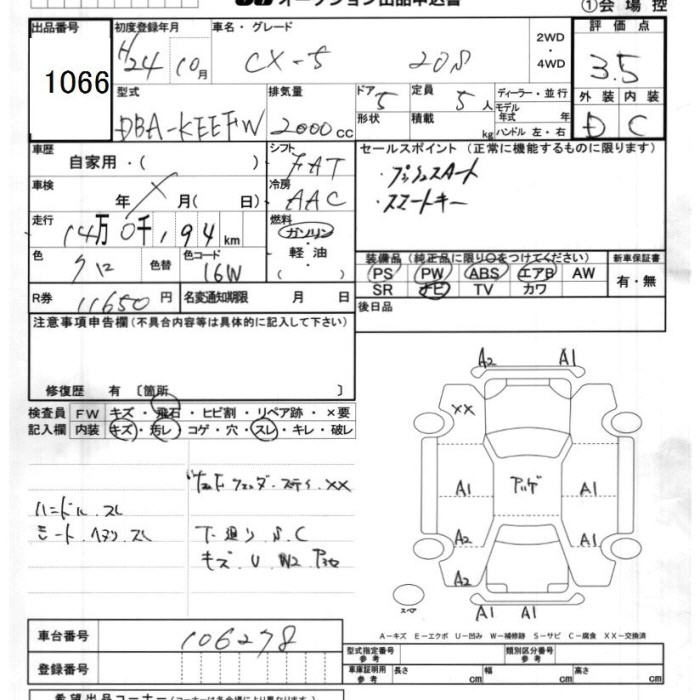 オークション出品申込書
①会場控
出品番号 初度登録年月 車名・グレード 2WD・4WD 評価点
1066 H24 10月 CX-5 20S 3.5
型式 排気量 ドア 定員 ディーラー・並行 外装 内装
DBA-KEEFW 2000cc 5 5人 モデル年式 年 D C
形状 積載 kg ハンドル 左・右
車歴 シフト セールスポイント(正常に機能するものに限ります)
自家用・( ) FAT ・プッシュスタート
車検 年 月( 日) 冷房 AAC ・スマートキー
走行 14万0千194km 燃料 ガソリン
軽油
( )
色 クロ 色替 色コード 16W
装備品(純正品に限り○をつけてください) 新車保証書
PS PW ABS エアB AW 有・無
SR ナビ TV カワ
R券 11650円 名変通知期限 月 日 後日品
注意事項申告欄(不具合内容等は具体的に記入して下さい)
修復歴 有〔箇所 〕
検査員 FW キズ・飛石・ヒビ割・リペア跡・×要
記入欄 内装 キズ・汚レ・コゲ・穴・スレ・キレ・破レ
A2 A1
XX
ハンドル.スレ
A1 A1 A1
下廻り.S.C
A2 A1
キズ.U.W2
A2
スペア
A1 A1
A-キズ E-エクボ U-凹み W-補修跡 S-サビ C-腐食 XX-交換済
車台番号 106278
型式指定番号 参考 類別区分番号 参考
登録番号
車庫証明用 参考 長さ cm 幅 cm 高さ cm
希望出品コーナー(コーナーは各会場により異なります)